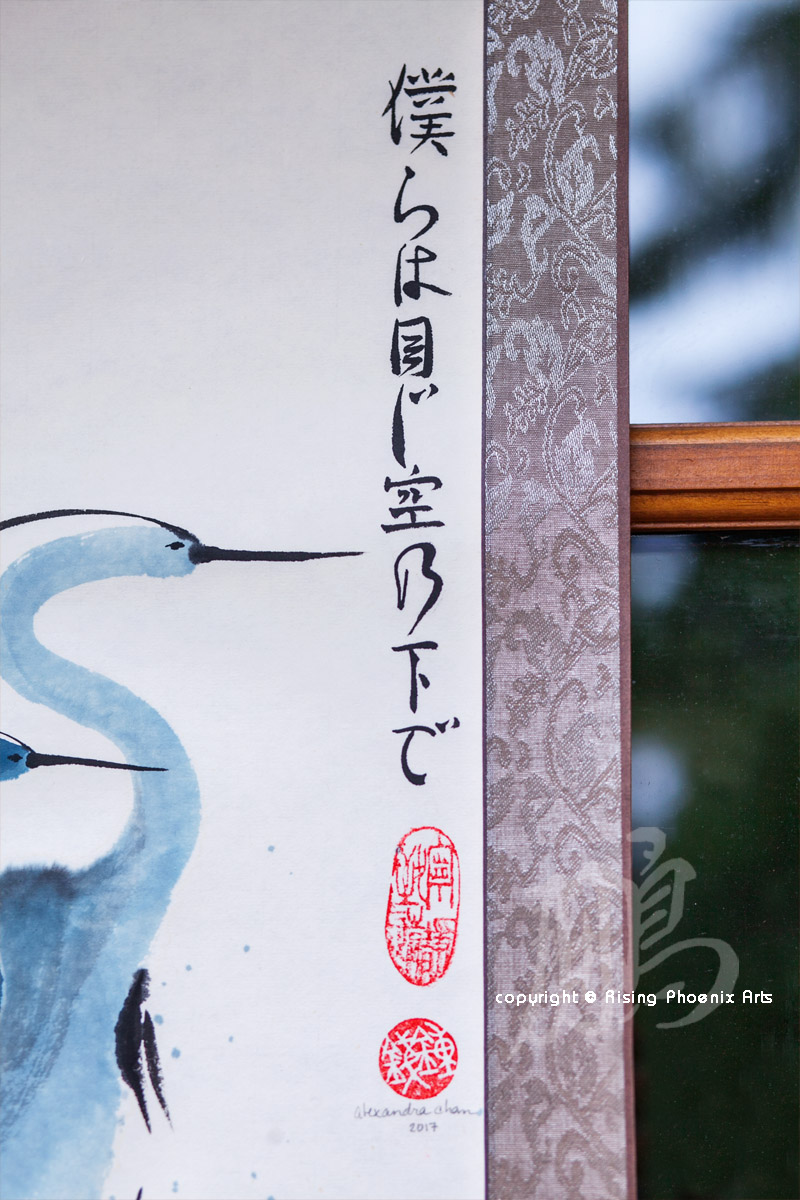 僕らは同じ空乃下で
alexandra chan
2017
copyright © Rising Phoenix Arts